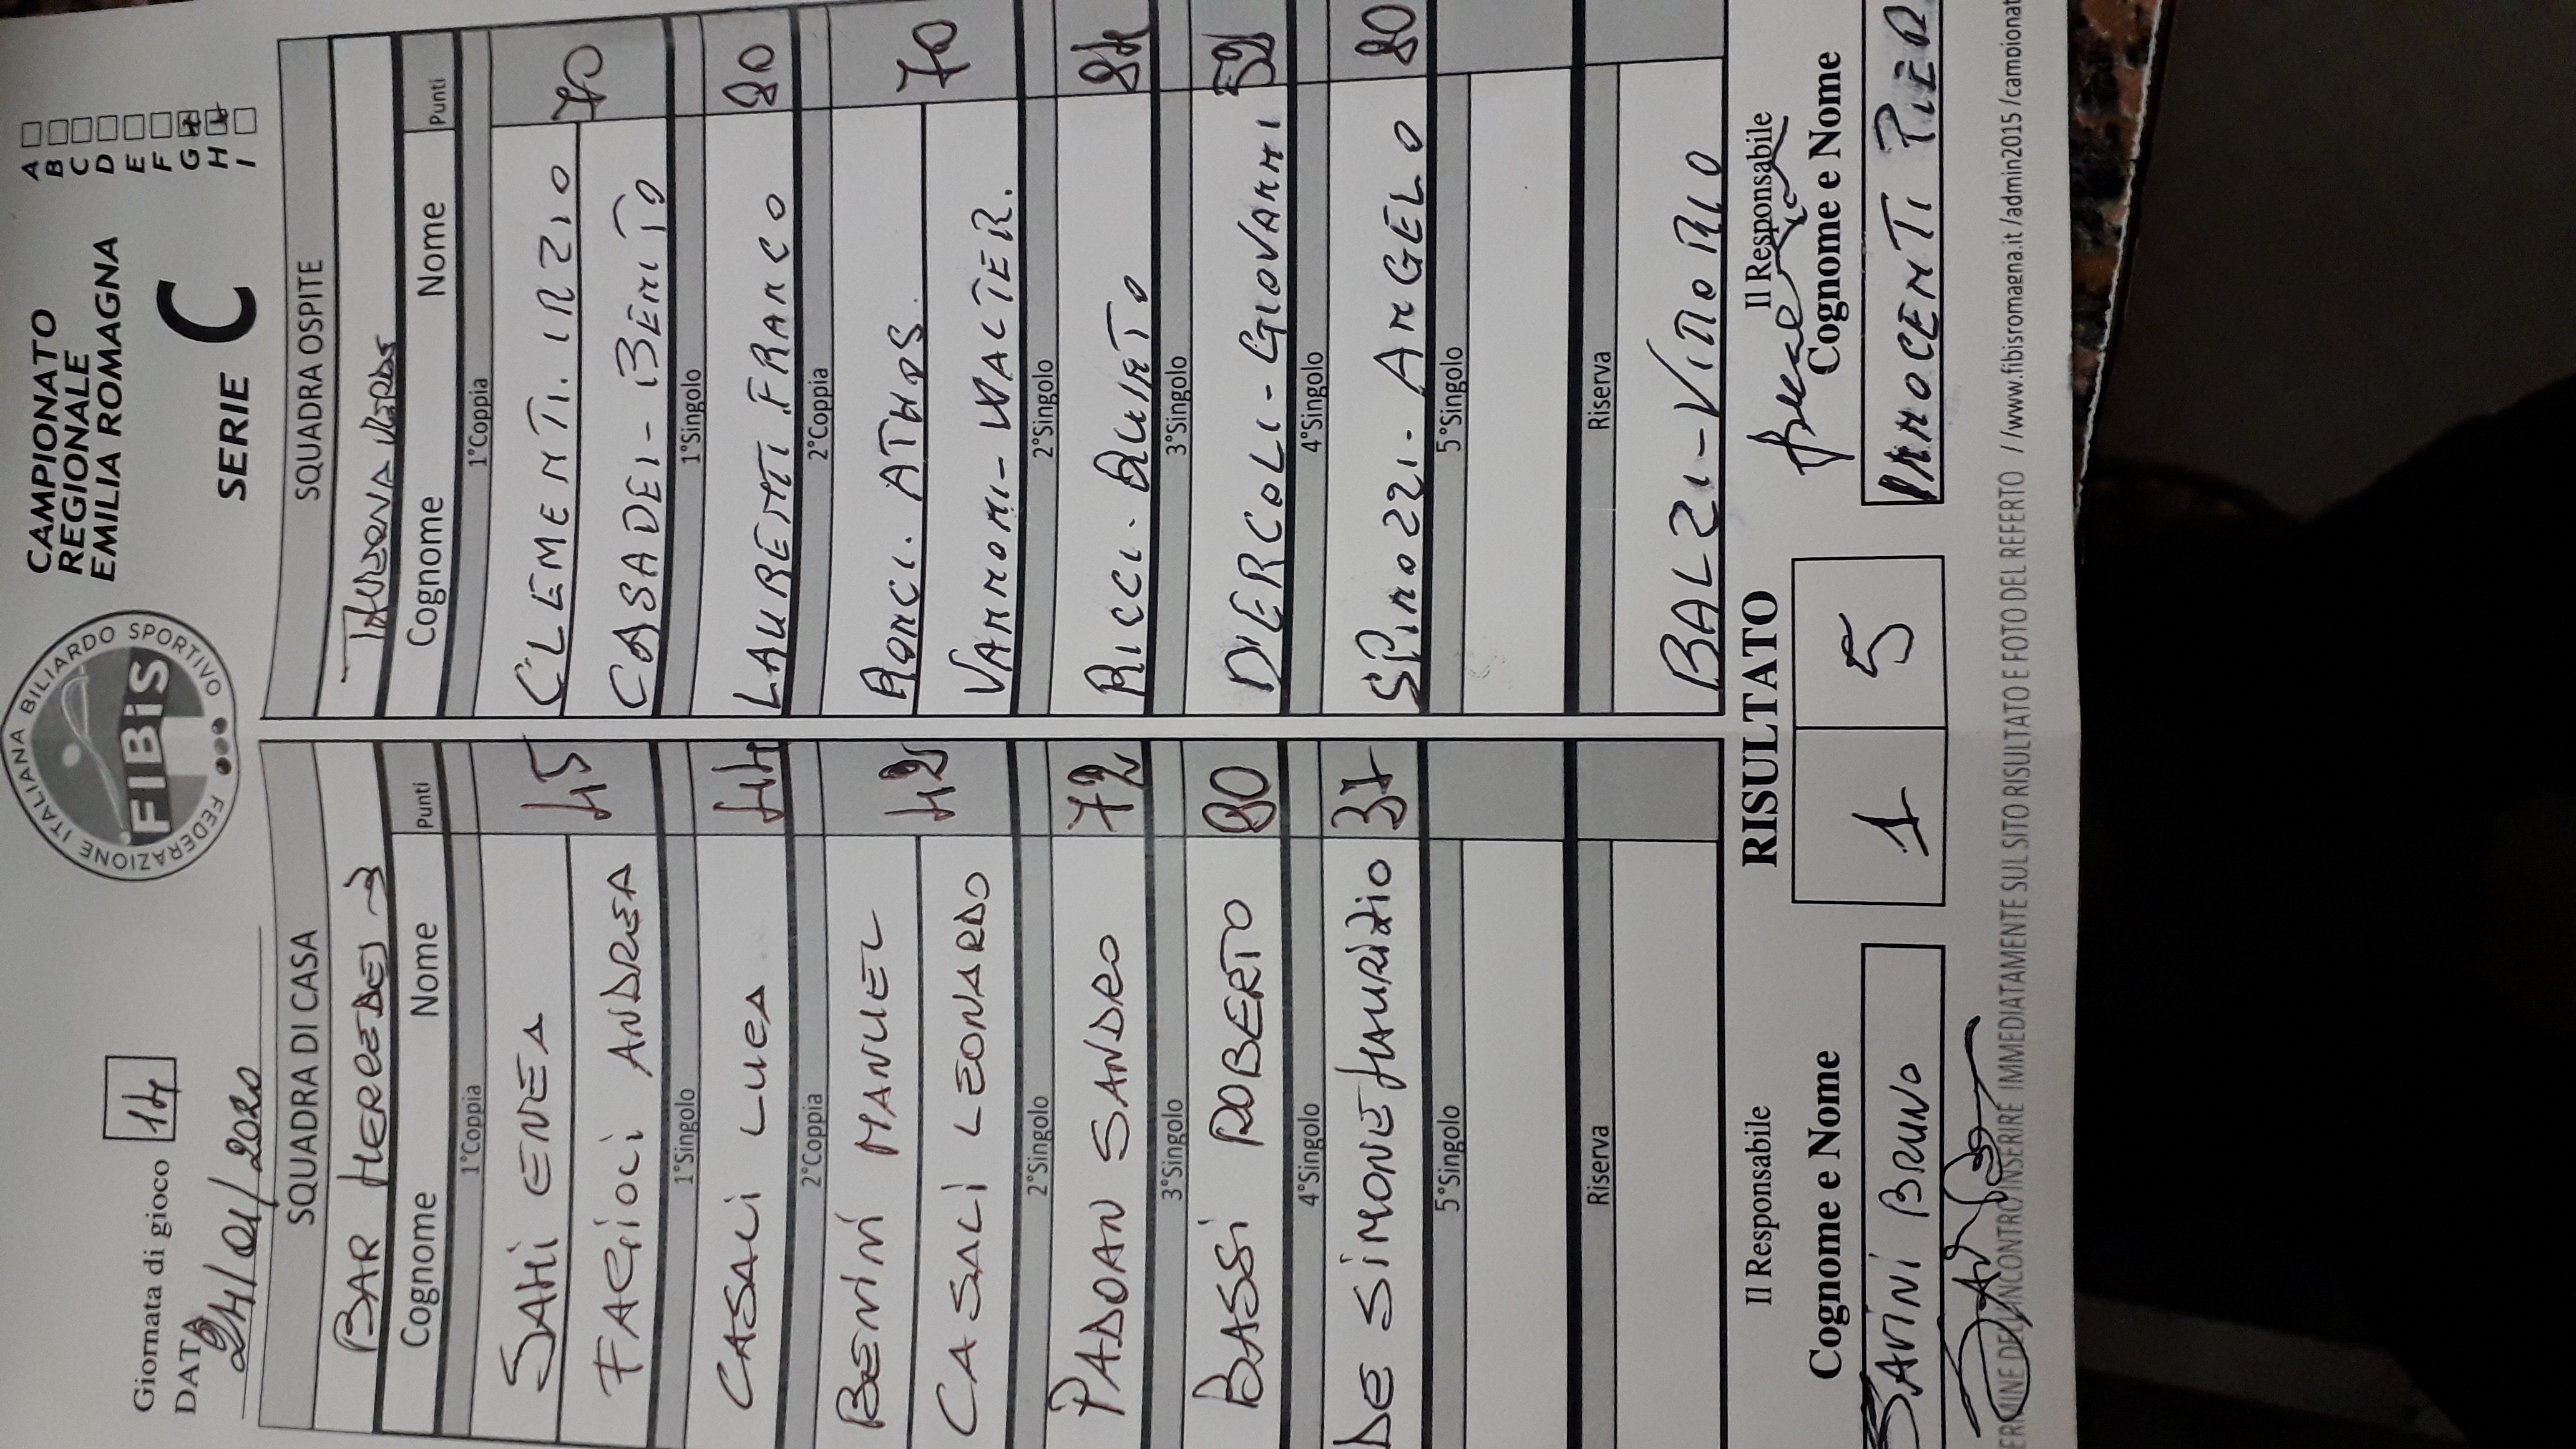 Giornata di gioco 14
DATA 24/01/2020
FEDERAZIONE ITALIANA BILIARDO SPORTIVO
FIBiS
CAMPIONATO
REGIONALE
EMILIA ROMAGNA
SERIE C
A
B
C
D
E
F
G
H
I
SQUADRA DI CASA
BAR HERCEDES 3
Cognome Nome Punti
1°Coppia
SAMI ENEA 45
FAGIOLI ANDREA
1°Singolo
CASALI LUCA 44
2°Coppia
BENINI MANUEL 42
CASALI LEONARDO
2°Singolo
PADOAN SANDRO 72
3°Singolo
BASSI ROBERTO 80
4°Singolo
DE SIMONE MAURIZIO 37
5°Singolo
Riserva
SQUADRA OSPITE
Cognome Nome Punti
1°Coppia
CLEMENTI. IRZIO 70
CASADEI - BENITO
1°Singolo
LAURENTI FRANCO 80
2°Coppia
RONCI. ATHOS. 70
VANNONI - WALTER.
2°Singolo
RICCI. QUINTO 84
3°Singolo
D'ERCOLI - GIOVANNI 59
4°Singolo
SPINOZZI. ANGELO 80
5°Singolo
Riserva
BALZI - VITTORIO
Il Responsabile
Cognome e Nome
SAVINI BRUNO
RISULTATO
1 5
Il Responsabile
Cognome e Nome
INNOCENTI PIER
ERMINE DELL'INCONTRO INSERIRE IMMEDIATAMENTE SUL SITO RISULTATO E FOTO DEL REFERTO //www.fibisromagna.it/admin2015/campionat